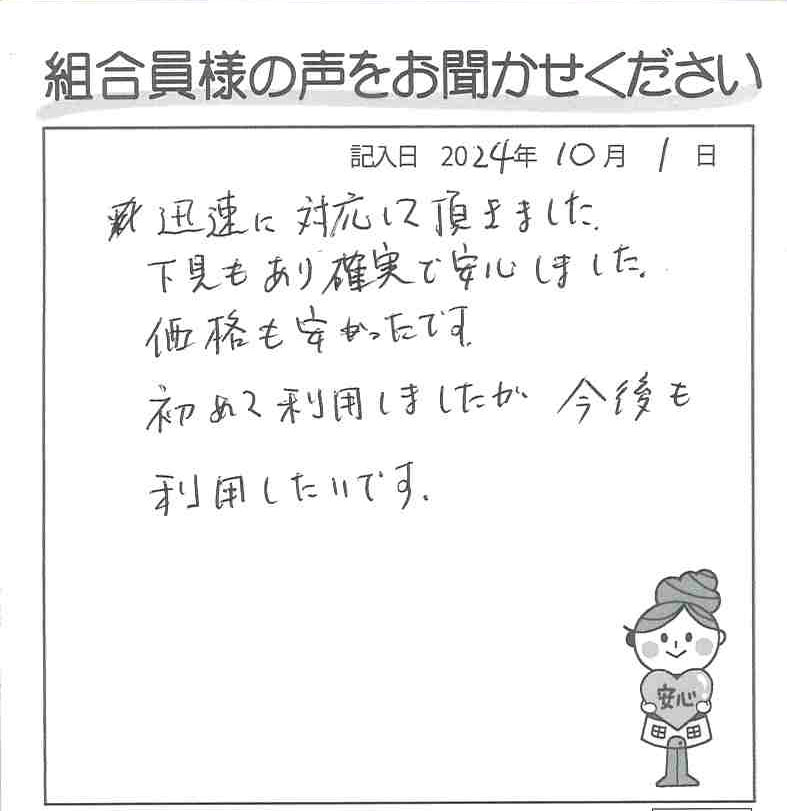 組合員様の声をお聞かせください
記入日 2024年 10月 1日
迅速に対応して頂きました.
下見もあり確実で安心しました。
価格も安かったです.
初めて利用しましたが 今後も
利用したいです.
安心